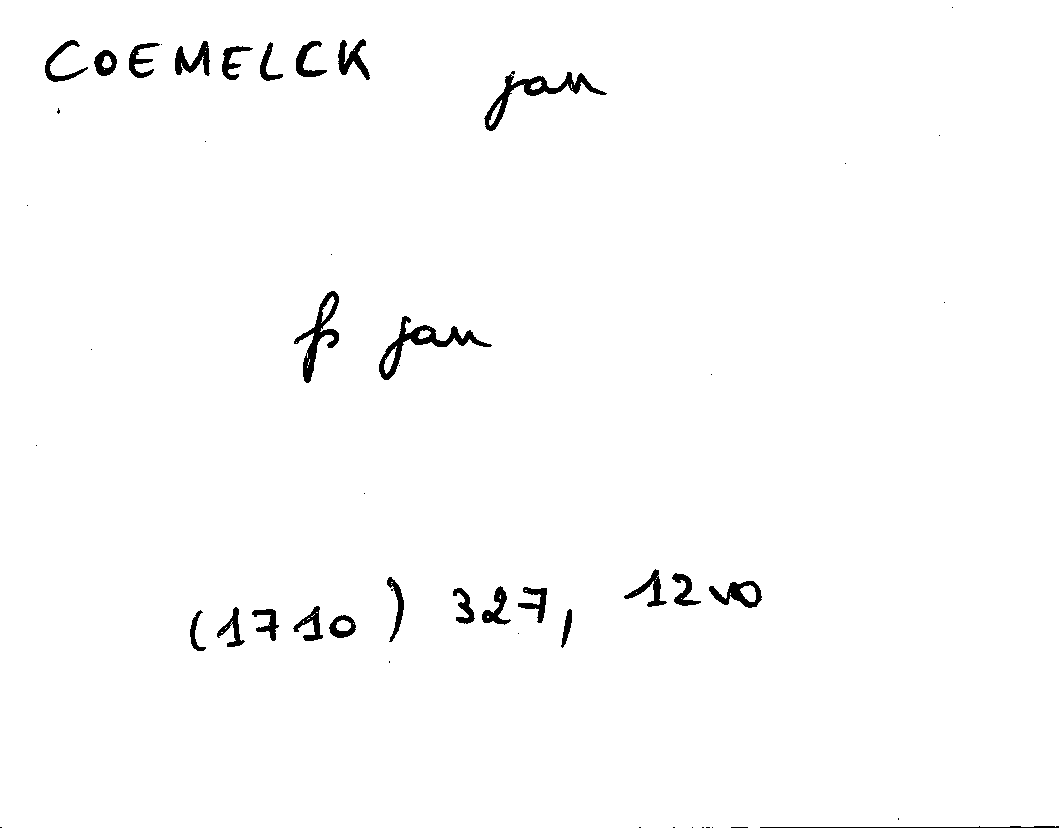 COEMELCK jan
fs jan
(1710) 327, 12vo